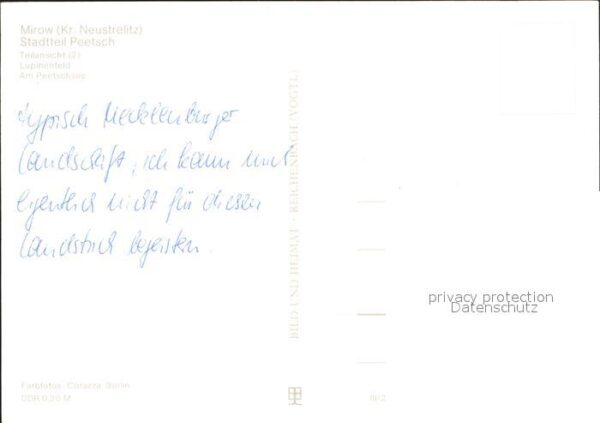 Mirow (Kr. Neustrelitz)
Stadtteil Peetsch
Teilansicht (2)
Lupinenfeld
Am Peetschsee
typisch Mecklenburger
Landschaft, ich kann mich
eigentlich nicht für diesen
Landstrich begeistern.
BILD UND HEIMAT REICHENBACH (VOGTL)
privacy protection
Datenschutz
Farbfotos: Corazza, Berlin
DDR 0,20 M
III/2